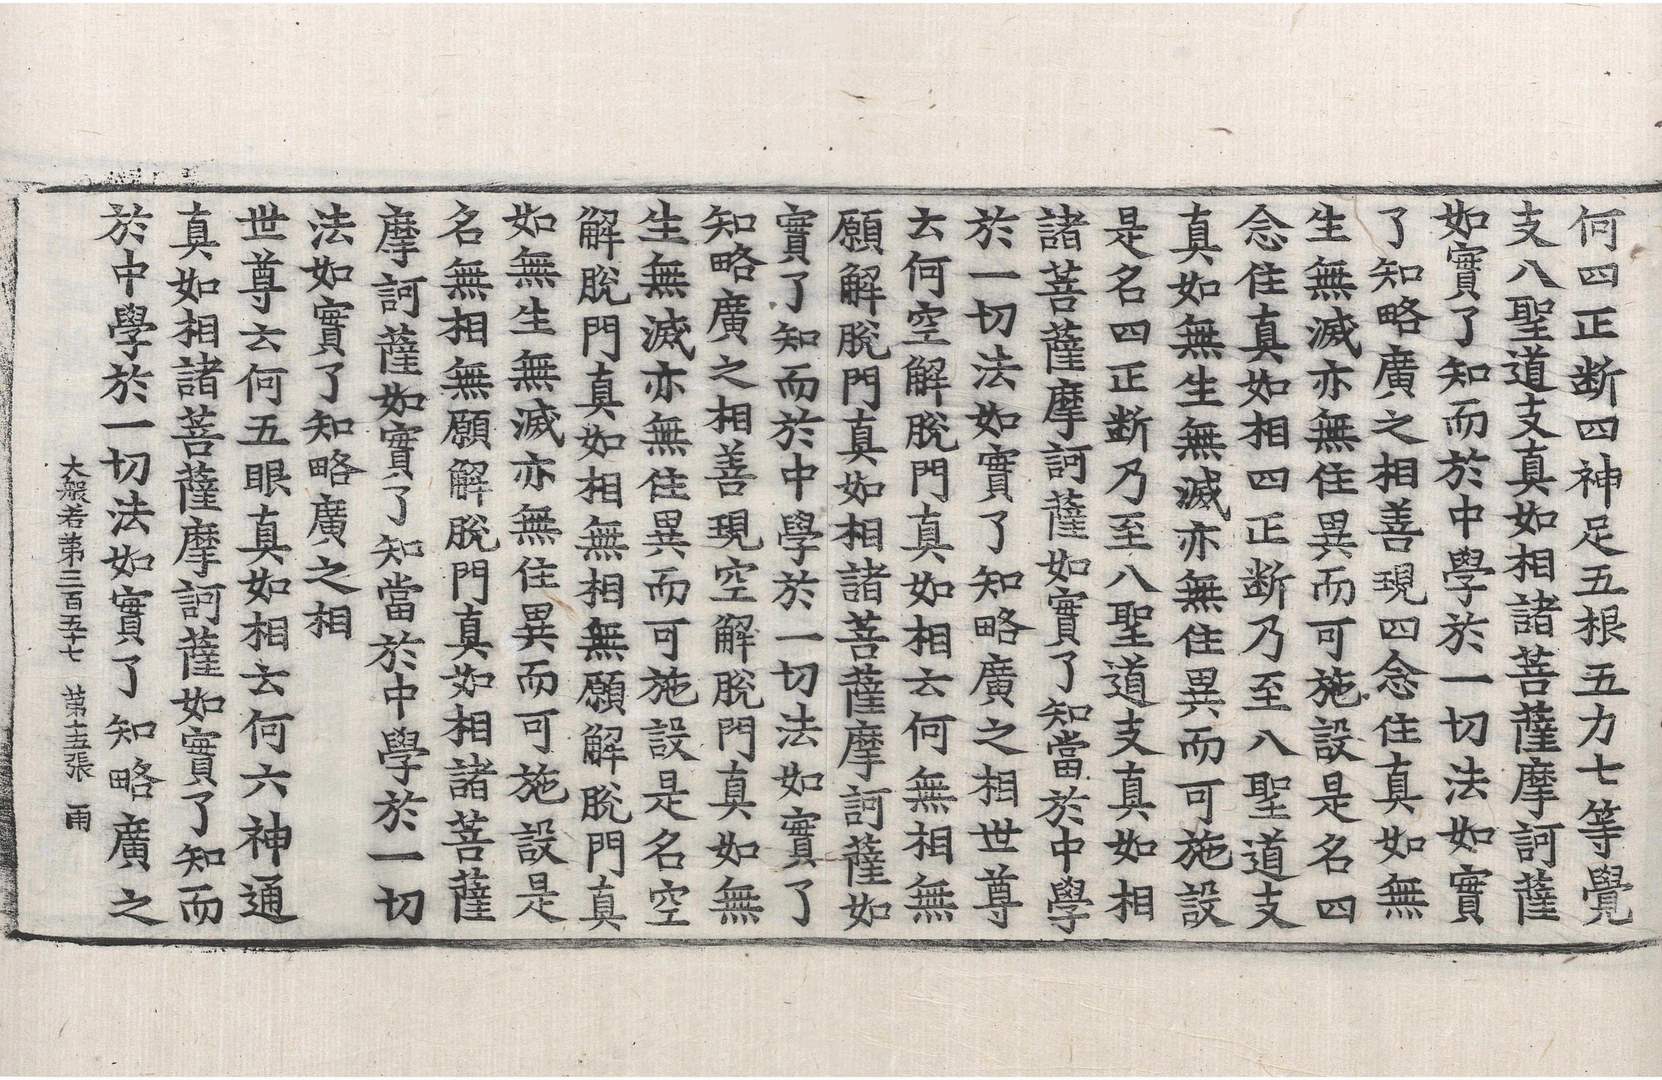 何四正断四神足五根五力七等覺
支八聖道支真如相諸菩薩摩訶薩
如實了知而於中學於一切法如實
了知略廣之相善現四念住真如無
生無滅亦無住異而可施設是名四
念住真如相四正断乃至八聖道支
真如無生無滅亦無住異而可施設
是名四正断乃至八聖道支真如相
諸菩薩摩訶薩如實了知當於中學
於一切法如實了知略廣之相世尊
云何空解脫門真如相云何無相無
願解脫門真如相諸菩薩摩訶薩如
實了知而於中學於一切法如實了
知略廣之相善現空解脫門真如無
生無滅亦無住異而可施設是名空
解脫門真如相無相無願解脫門真
如無生無滅亦無住異而可施設是
名無相無願解脫門真如相諸菩薩
摩訶薩如實了知當於中學於一切
法如實了知略廣之相
世尊云何五眼真如相云何六神通
真如相諸菩薩摩訶薩如實了知而
於中學於一切法如實了知略廣之
大般若第三百五十七 第十五張 雨